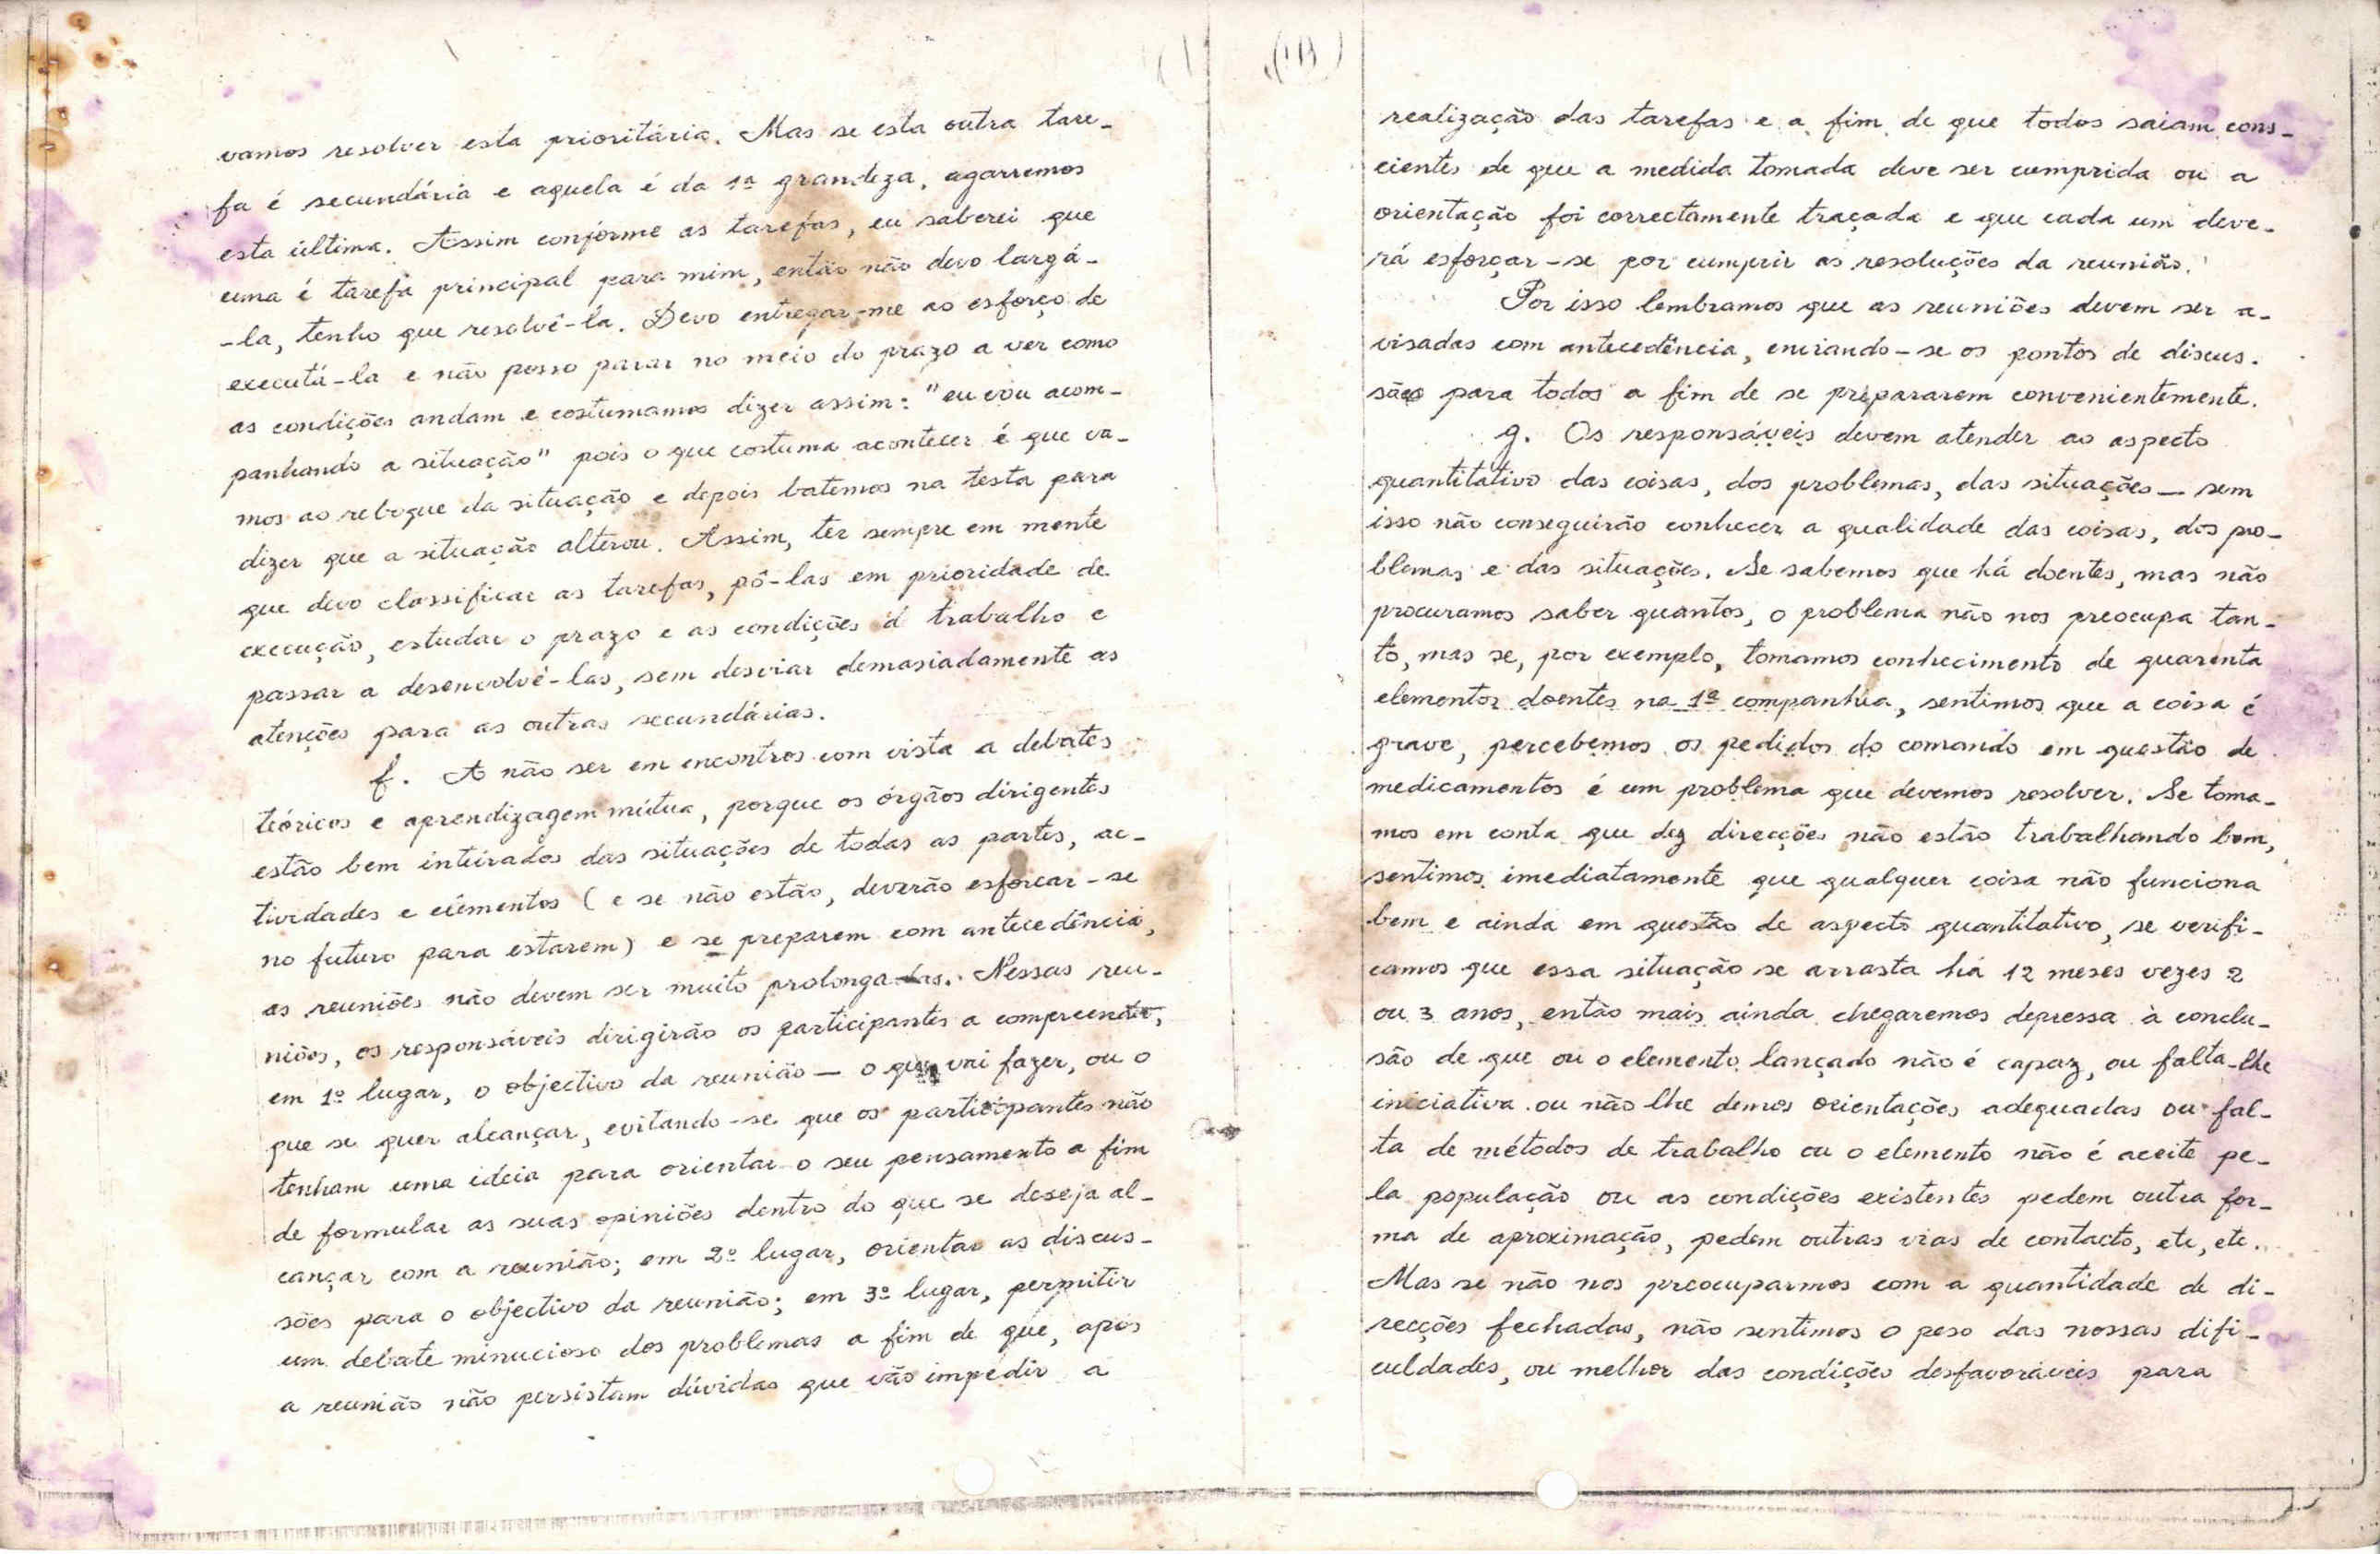 vamos resolver esta prioritária. Mas se esta outra tare-
fa é secundária e aquela é da 1ª grandeza, agarremos
esta última. Assim conforme as tarefas, eu saberei que
uma é tarefa principal para mim, então não devo largá-
-la, tenho que resolvê-la. Devo entregar-me ao esforço de
executá-la e não posso parar no meio do prazo a ver como
as condições andam e costumamos dizer assim: "eu vou acom-
panhando a situação" pois o que costuma acontecer é que va-
mos ao reboque da situação e depois batemos na testa para
dizer que a situação alterou. Assim, ter sempre em mente
que devo classificar as tarefas, pô-las em prioridade de
execução, estudar o prazo e as condições d trabalho e
passar a desenvolvê-las, sem desviar demasiadamente as
atenções para as outras secundárias.
f. A não ser em encontros com vista a debates
teóricos e aprendizagem mútua, porque os órgãos dirigentes
estão bem inteirados das situações de todas as partes, ac-
tividades e elementos (e se não estão, deverão esforcar-se
no futuro para estarem) e se preparem com antecedência,
as reuniões não devem ser muito prolongadas. Nessas reu-
niões, os responsáveis dirigirão os participantes a compreender,
em 1º lugar, o objectivo da reunião — o que vai fazer, ou o
que se quer alcançar, evitando-se que os participantes não
tenham uma ideia para orientar o seu pensamento a fim
de formular as suas opiniões dentro do que se deseja al-
cançar com a reunião; em 2º lugar, orientar as discus-
sões para o objectivo da reunião; em 3º lugar, permitir
um debate minucioso dos problemas a fim de que, após
a reunião não persistam dúvidas que vão impedir a
realização das tarefas e a fim de que todos saiam cons-
cientes de que a medida tomada deve ser cumprida ou a
orientação foi correctamente traçada e que cada um deve-
rá esforçar-se por cumprir as resoluções da reunião.
Por isso lembramos que as reuniões devem ser a-
visadas com antecedência, enviando-se os pontos de discus-
são para todos a fim de se prepararem convenientemente.
g. Os responsáveis devem atender ao aspecto
quantitativo das coisas, dos problemas, das situações — sem
isso não conseguirão conhecer a qualidade das coisas, dos pro-
blemas e das situações. Se sabemos que há doentes, mas não
procuramos saber quantos, o problema não nos preocupa tan-
to, mas se, por exemplo, tomamos conhecimento de quarenta
elementos doentes na 1ª companhia, sentimos que a coisa é
grave, percebemos os pedidos do comando em questão de
medicamentos é um problema que devemos resolver. Se toma-
mos em conta que dez direcções não estão trabalhando bem,
sentimos imediatamente que qualquer coisa não funciona
bem e ainda em questão de aspecto quantitativo, se verifi-
camos que essa situação se arrasta há 12 meses vezes 2
ou 3 anos, então mais ainda chegaremos depressa à conclu-
são de que ou o elemento lançado não é capaz, ou falta-lhe
iniciativa ou não lhe demos orientações adequadas ou fal-
ta de métodos de trabalho ou o elemento não é aceite pe-
la população ou as condições existentes pedem outra for-
ma de aproximação, pedem outras vias de contacto, etc, etc.
Mas se não nos preocuparmos com a quantidade de di-
recções fechadas, não sentimos o peso das nossas difi-
culdades, ou melhor das condições desfavoráveis para